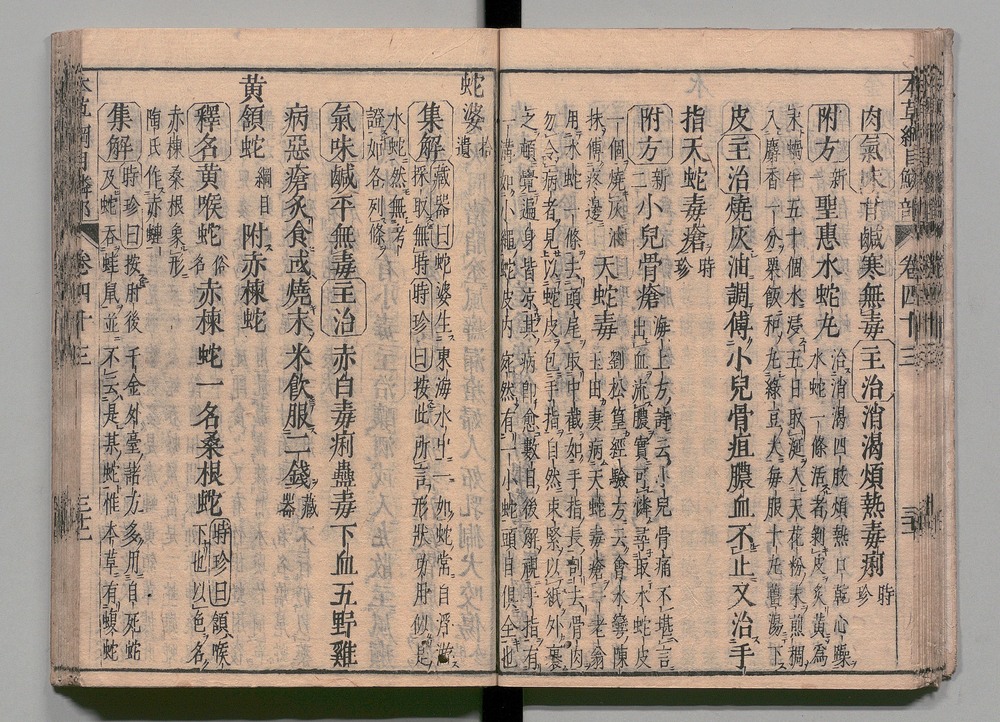 本草綱目鱗部 卷四十三
肉氣味甘鹹寒無毒主治消渴煩熱毒痢時珍
附方新一聖惠水蛇丸治消渴四肢煩熱口乾心躁水蛇一條活者剝皮炙黃為
末蝸牛五十個水浸五日取涎入天花粉末煎稠
入麝香一分粟飯和丸綠豆大每服十丸薑湯下
皮主治燒灰油調傅小兒骨疽膿血不止又治手
指天蛇毒瘡時珍
附方新二小兒骨瘡海上方詩云小兒骨痛不堪言出血流膿實可憐尋取水蛇皮
一個燒灰油抹傅疼邊天蛇毒劉松篁經驗方云會水灣陳玉田妻病天蛇毒瘡一老翁
用水蛇一條去頭尾取中截如手指長剖去骨肉
勿令病者見以蛇皮包手指自然束緊以紙外裹
之頓覺遍身皆涼其病即愈數日後解視手指有
一溝如小繩蛇皮內宛然有一小蛇頭目俱全也
蛇婆拾遺
集解藏器曰蛇婆生東海水中一如蛇常自浮游
採取無時時珍曰按此所言形狀功用似是
水蛇然無考證姑各列條
氣味鹹平無毒主治赤白毒痢蠱毒下血五野雞
病惡瘡炙食或燒末米飲服二錢藏器
黃頷蛇綱目附赤楝蛇
釋名黃喉蛇俗名赤楝蛇一名桑根蛇時珍曰頷喉下也以色名
赤楝桑根象形
陶氏作赤蝀
集解時珍曰按肘後千金外臺諸方多用自死蛇
及蛇吞蛙鼠並不云是某蛇惟本草有蝮蛇
本草綱目鱗部 卷四十三